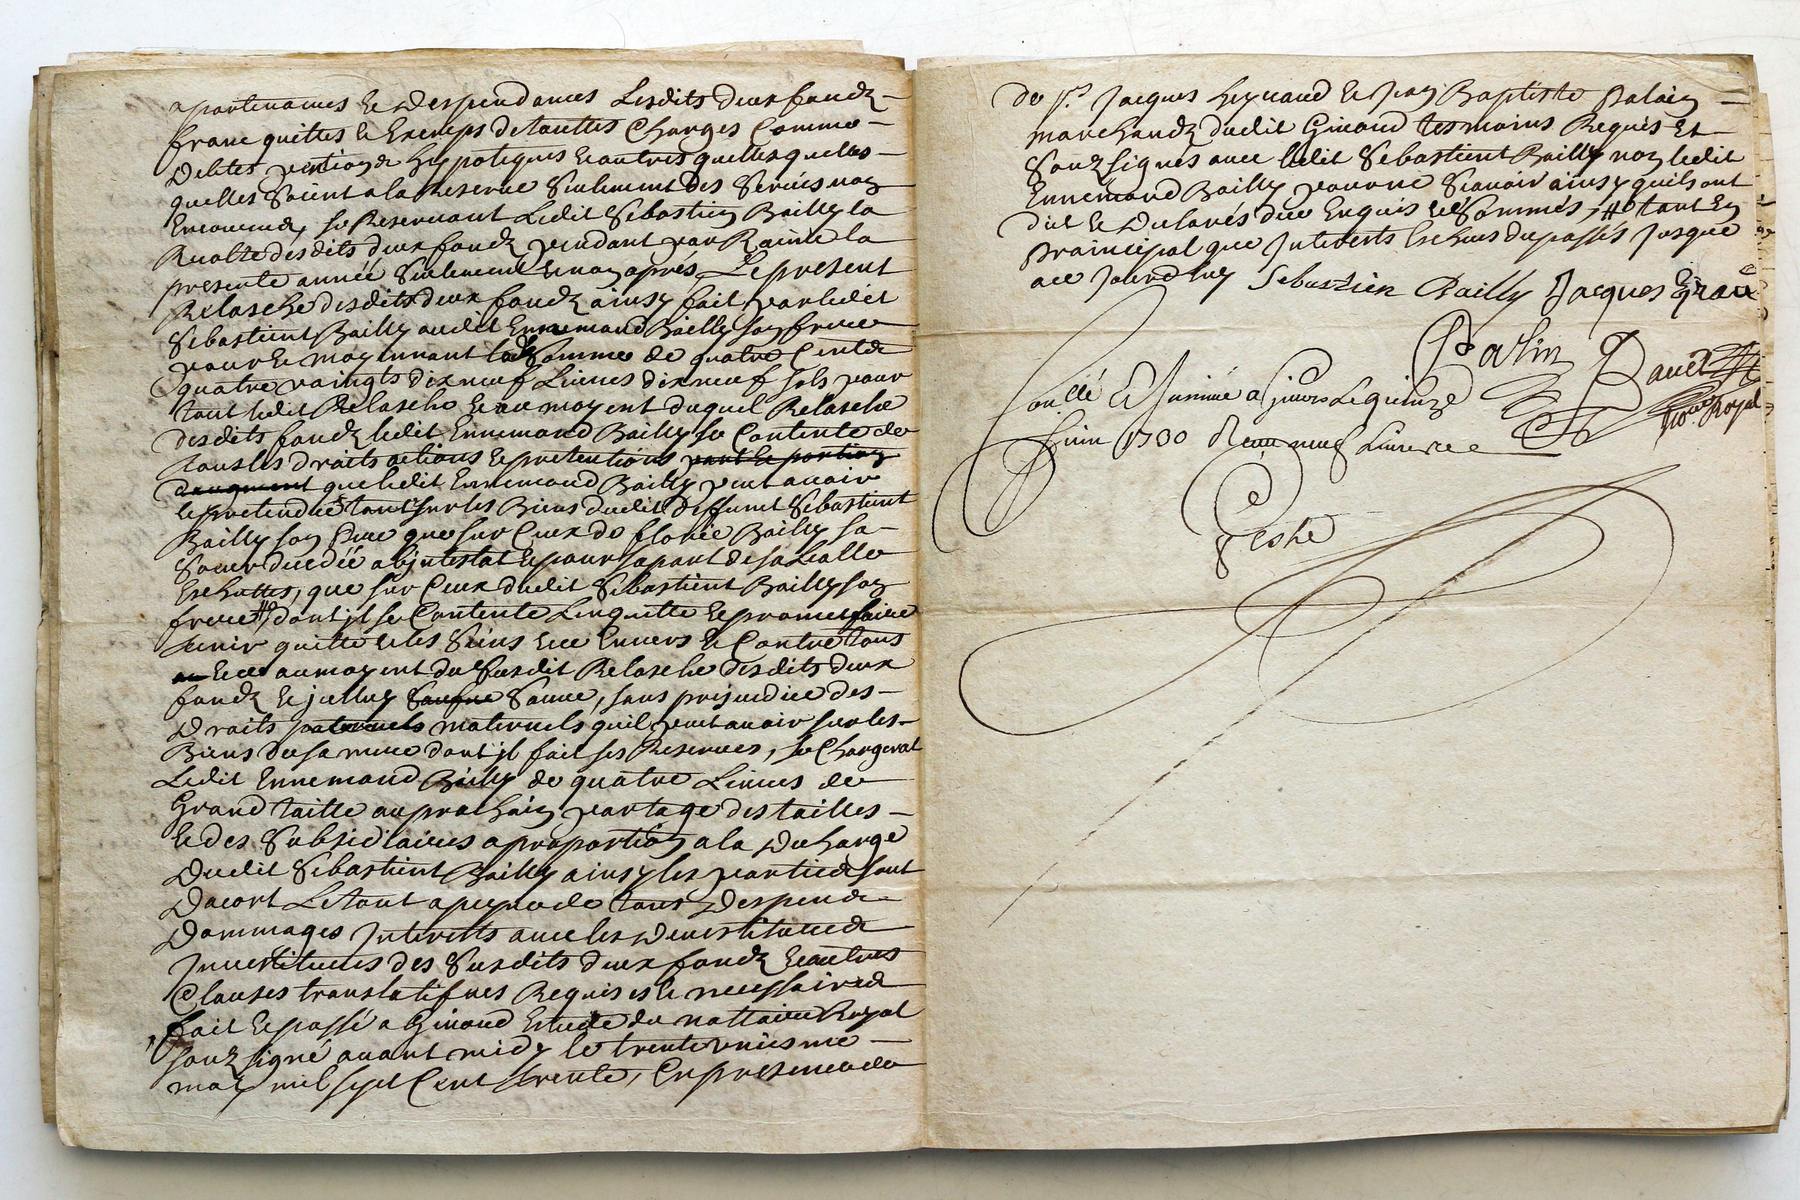 apartenances et despendances Lesdits deux fondz
franc quittes et Exemps de touttes Charges Comme
Debtes pention et hyppoteques et autres quelles quelles
quelles Soient a la Reserve Seulement des Servis non
Encourus, se Reservant Ledit Sebastien Bailly la
Recolte desdits deux fondz pendant par Racine la
presente année Seulement et non aprés, Le present
Relasche desdits deux fondz ainsy fait par ledit
Sebastient Bailly audit Ennemond Bailly son frere
pour et moyennant la Somme de quatre Cents
quatre vaingts dix neuf Livres dix neuf sols pour
tout ledit Relasche et au moyent duquel Relasche
desdits fondz ledit Ennemond Bailly se Contente de
tous les droits actions et pretentions part et portion
daugment que ledit Ennemond Bailly peut avoir
et pretendre tant sur les Biens dudit deffunt Sebastient
Bailly son Pere que sur Ceux de Florie Bailly sa
Soeur decedée abjntestat et pour sa part de sa
Eschuttes, que sur Ceux dudit Sebastient Bailly son
frere # dont jl se Contente Lenquitte et promet faire
tenir quitte et les Siens Envers et Contre tous
au moyent du susdit Relasche desdits deux
fondz et jcelluy Sauve, sans prejudice des
Droits paternels maternels quil peut avoir sur les
Biens de sa mere dont jl fait ses Reserves, se Chargerat
Ledit Ennemond Bailly de quatre Livres de
Grand taille au prochain partage des tailles
et des Subsidiaires a proportion a la Decharge
Dudit Sebastient Bailly ainsy les parties sont
Dacort Le tout a peyne de tous Despends
Dommages Interests avec les Devestitures
Jnvestitures des Susdits deux fondz et autres
Clauses translatifves Requises et necessaires
fait et passé a Givord Estude du nottaire Royal
souzsigné avant midy le trente uniesme
may mil sept Cent trente, En presence de
de sr. Jacques Geynaud et Jean Baptiste Palain
marchandz dudit Givord tesmoins Requis Et
Souzsignés avec ledit Sebastient Bailly non ledit
Ennemond Bailly pour ne Scavoir ainsy quils ont
dit et Declarés de ce Enquis et Sommés, # tant En
Praincipal que Jnterests Escheus du passés Jusque
a ce Jourdhuy Sebastien Bailly Jacques
Palin
Royal
Controllé et Jnsinué a givors Le quinze
Juin 1730 Reçu neuf Livres
Teste